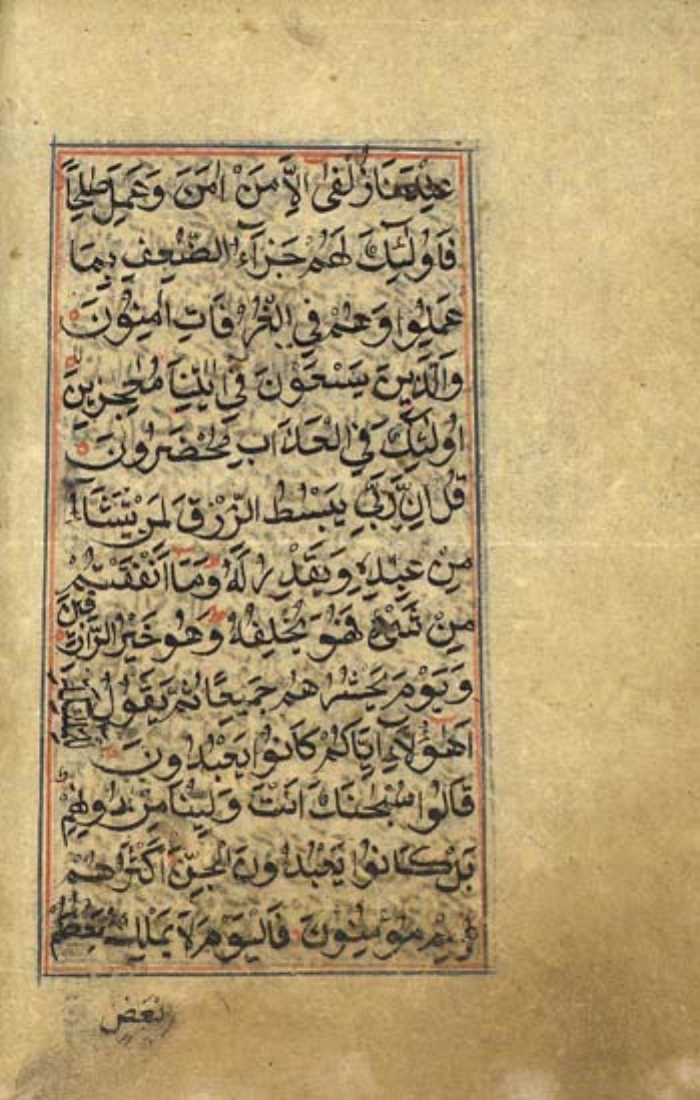 عندنا زلفى الا من امن وعمل صلحا
فاولئك لهم جزاء الضعف بما
عملوا وهم في الغرفات امنون
والذين يسعون في ايتنا معجزين
اولئك في العذاب محضرون
قل ان ربي يبسط الرزق لمن يشاء
من عبده ويقدر له وما انفقتم
من شيء فهو يخلفه وهو خير الرازقين
ويوم يحشرهم جميعا ثم يقول
اهؤلاء اياكم كانوا يعبدون
قالوا سبحنك انت ولينا من دونهم
بل كانوا يعبدون الجن اكثرهم
بهم مؤمنون فاليوم لا يملك بعضكم
بعض